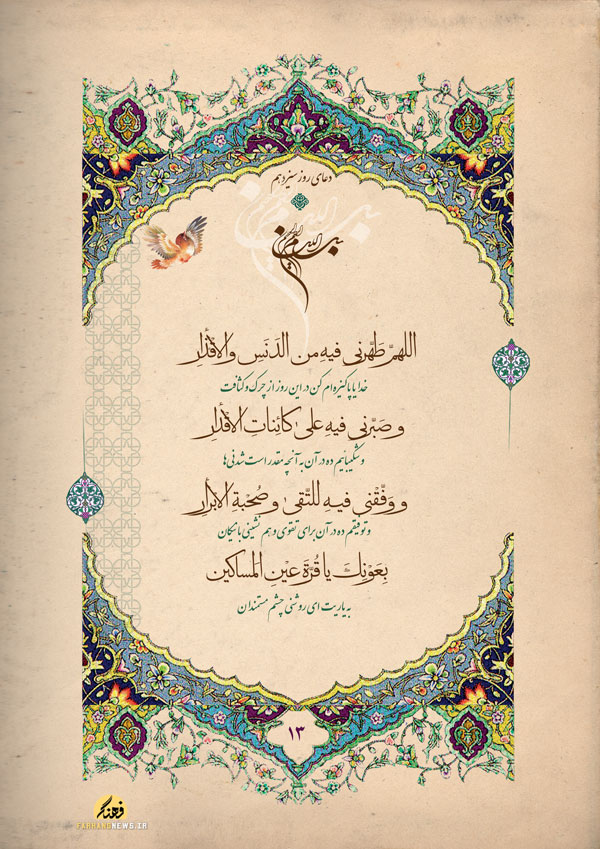 دعای روز سیزدهم
بسم الله الرحمن الرحیم
اللهمَّ طَهِّرنی فیهِ من الدَنَسِ والاقْذارِ
خدایا پاکیزه‌ام کن در این روز از چرک و کثافت
و صَبِّرنی فیهِ علیٰ کائِناتِ الاقْدارِ
و شکیبائیم ده در آن به آنچه مقدر است شدنی‌ها
و وَفِّقْنی فیهِ للتُّقیٰ و صُحْبةِ الابْرارِ
و توفیقم ده در آن برای تقوی و هم نشینی با نیکان
بِعَوْنِکَ یا قُرَّةَ عَیْنِ المساکین
به یاریت ای روشنی چشم مستمندان
۱۳
فرهنگ
FARHANGNEWS.IR